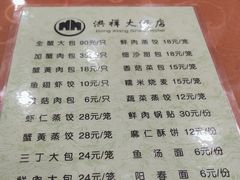 洪祥大酒店
Hong Xiang Grand Hotel
全蟹大包 90元/只 鲜肉蒸饺 18元/笼
加蟹肉包 35元/只 细沙面包 18元/笼
蟹黄肉包 18元/只 香菇菜包 15元/笼
鱼翅虾饺 10元/只 糯米烧麦 15元/笼
菇肉包 6元/只 蔬菜蒸饺 12元/笼
虾仁蒸饺 28元/笼 鲜肉锅贴 30元/份
蟹黄蒸饺 28元/笼 麻仁酥饼 12元/份
三丁大包 24元/笼 鱼汤面 6元/份
鲜肉大包 24元/笼 阳春面 5元/份